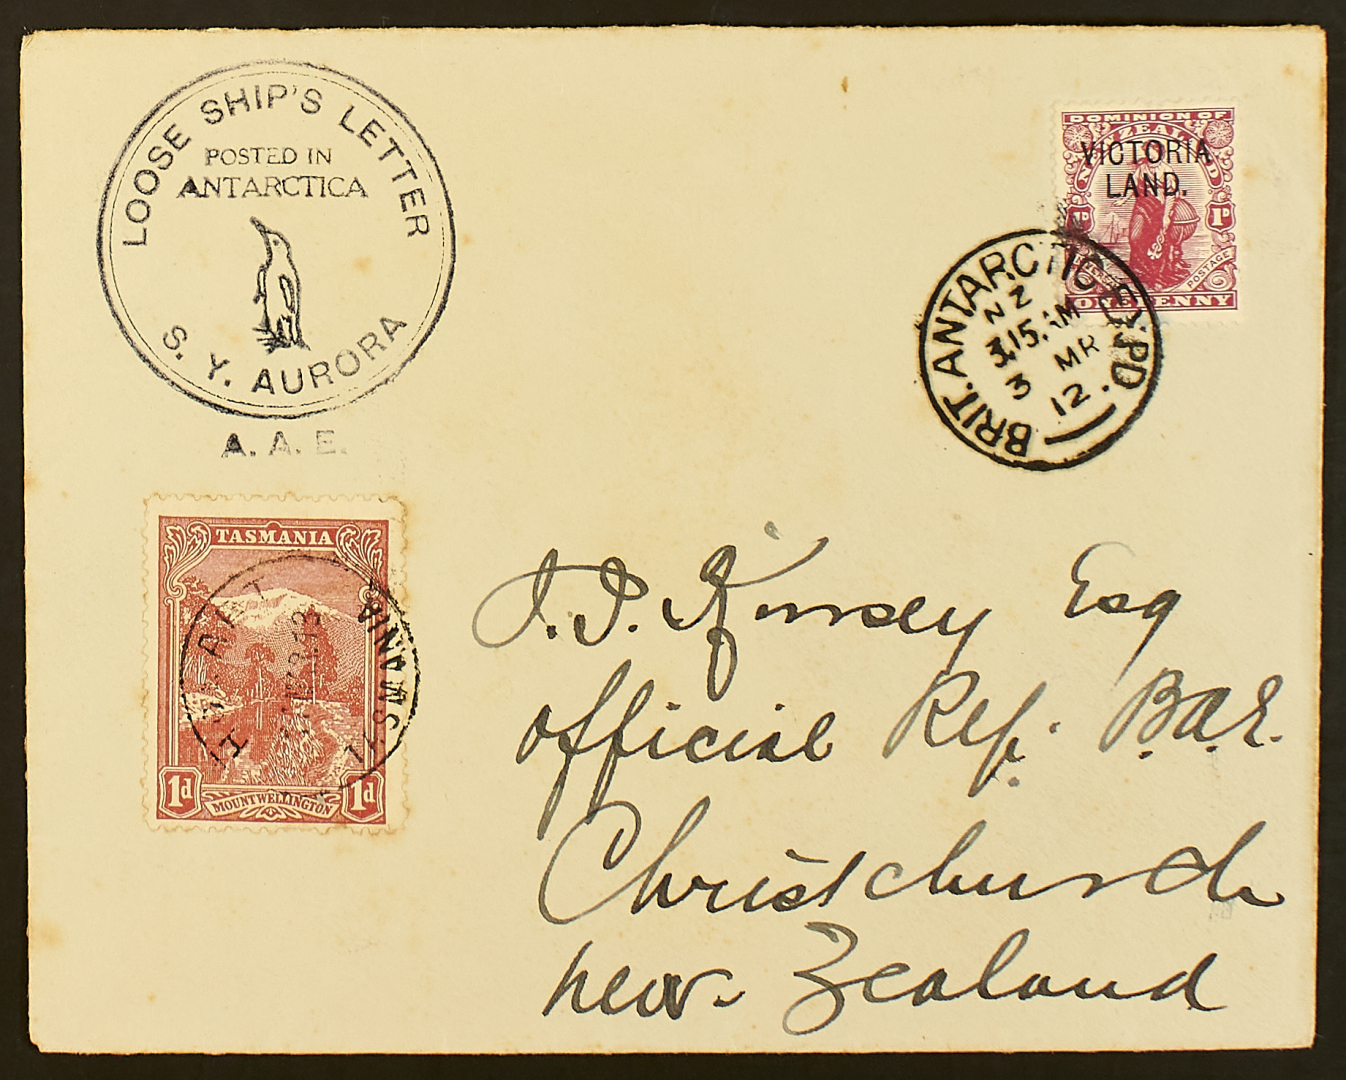 LOOSE SHIP'S LETTER
POSTED IN
ANTARCTICA
S. Y. AURORA
A. A. E.
DOMINION OF
NEW ZEALAND
VICTORIA
LAND.
1D 1D
POSTAGE
ONE PENNY
BRIT. ANTARCTIC EXPD.
NZ
3.15.AM
3 MR
12
TASMANIA
HOBART
TASMANIA
1d MOUNT WELLINGTON 1d
J. J. Kinsey Esq
Official Rep. B.A.E.
Christchurch
New Zealand